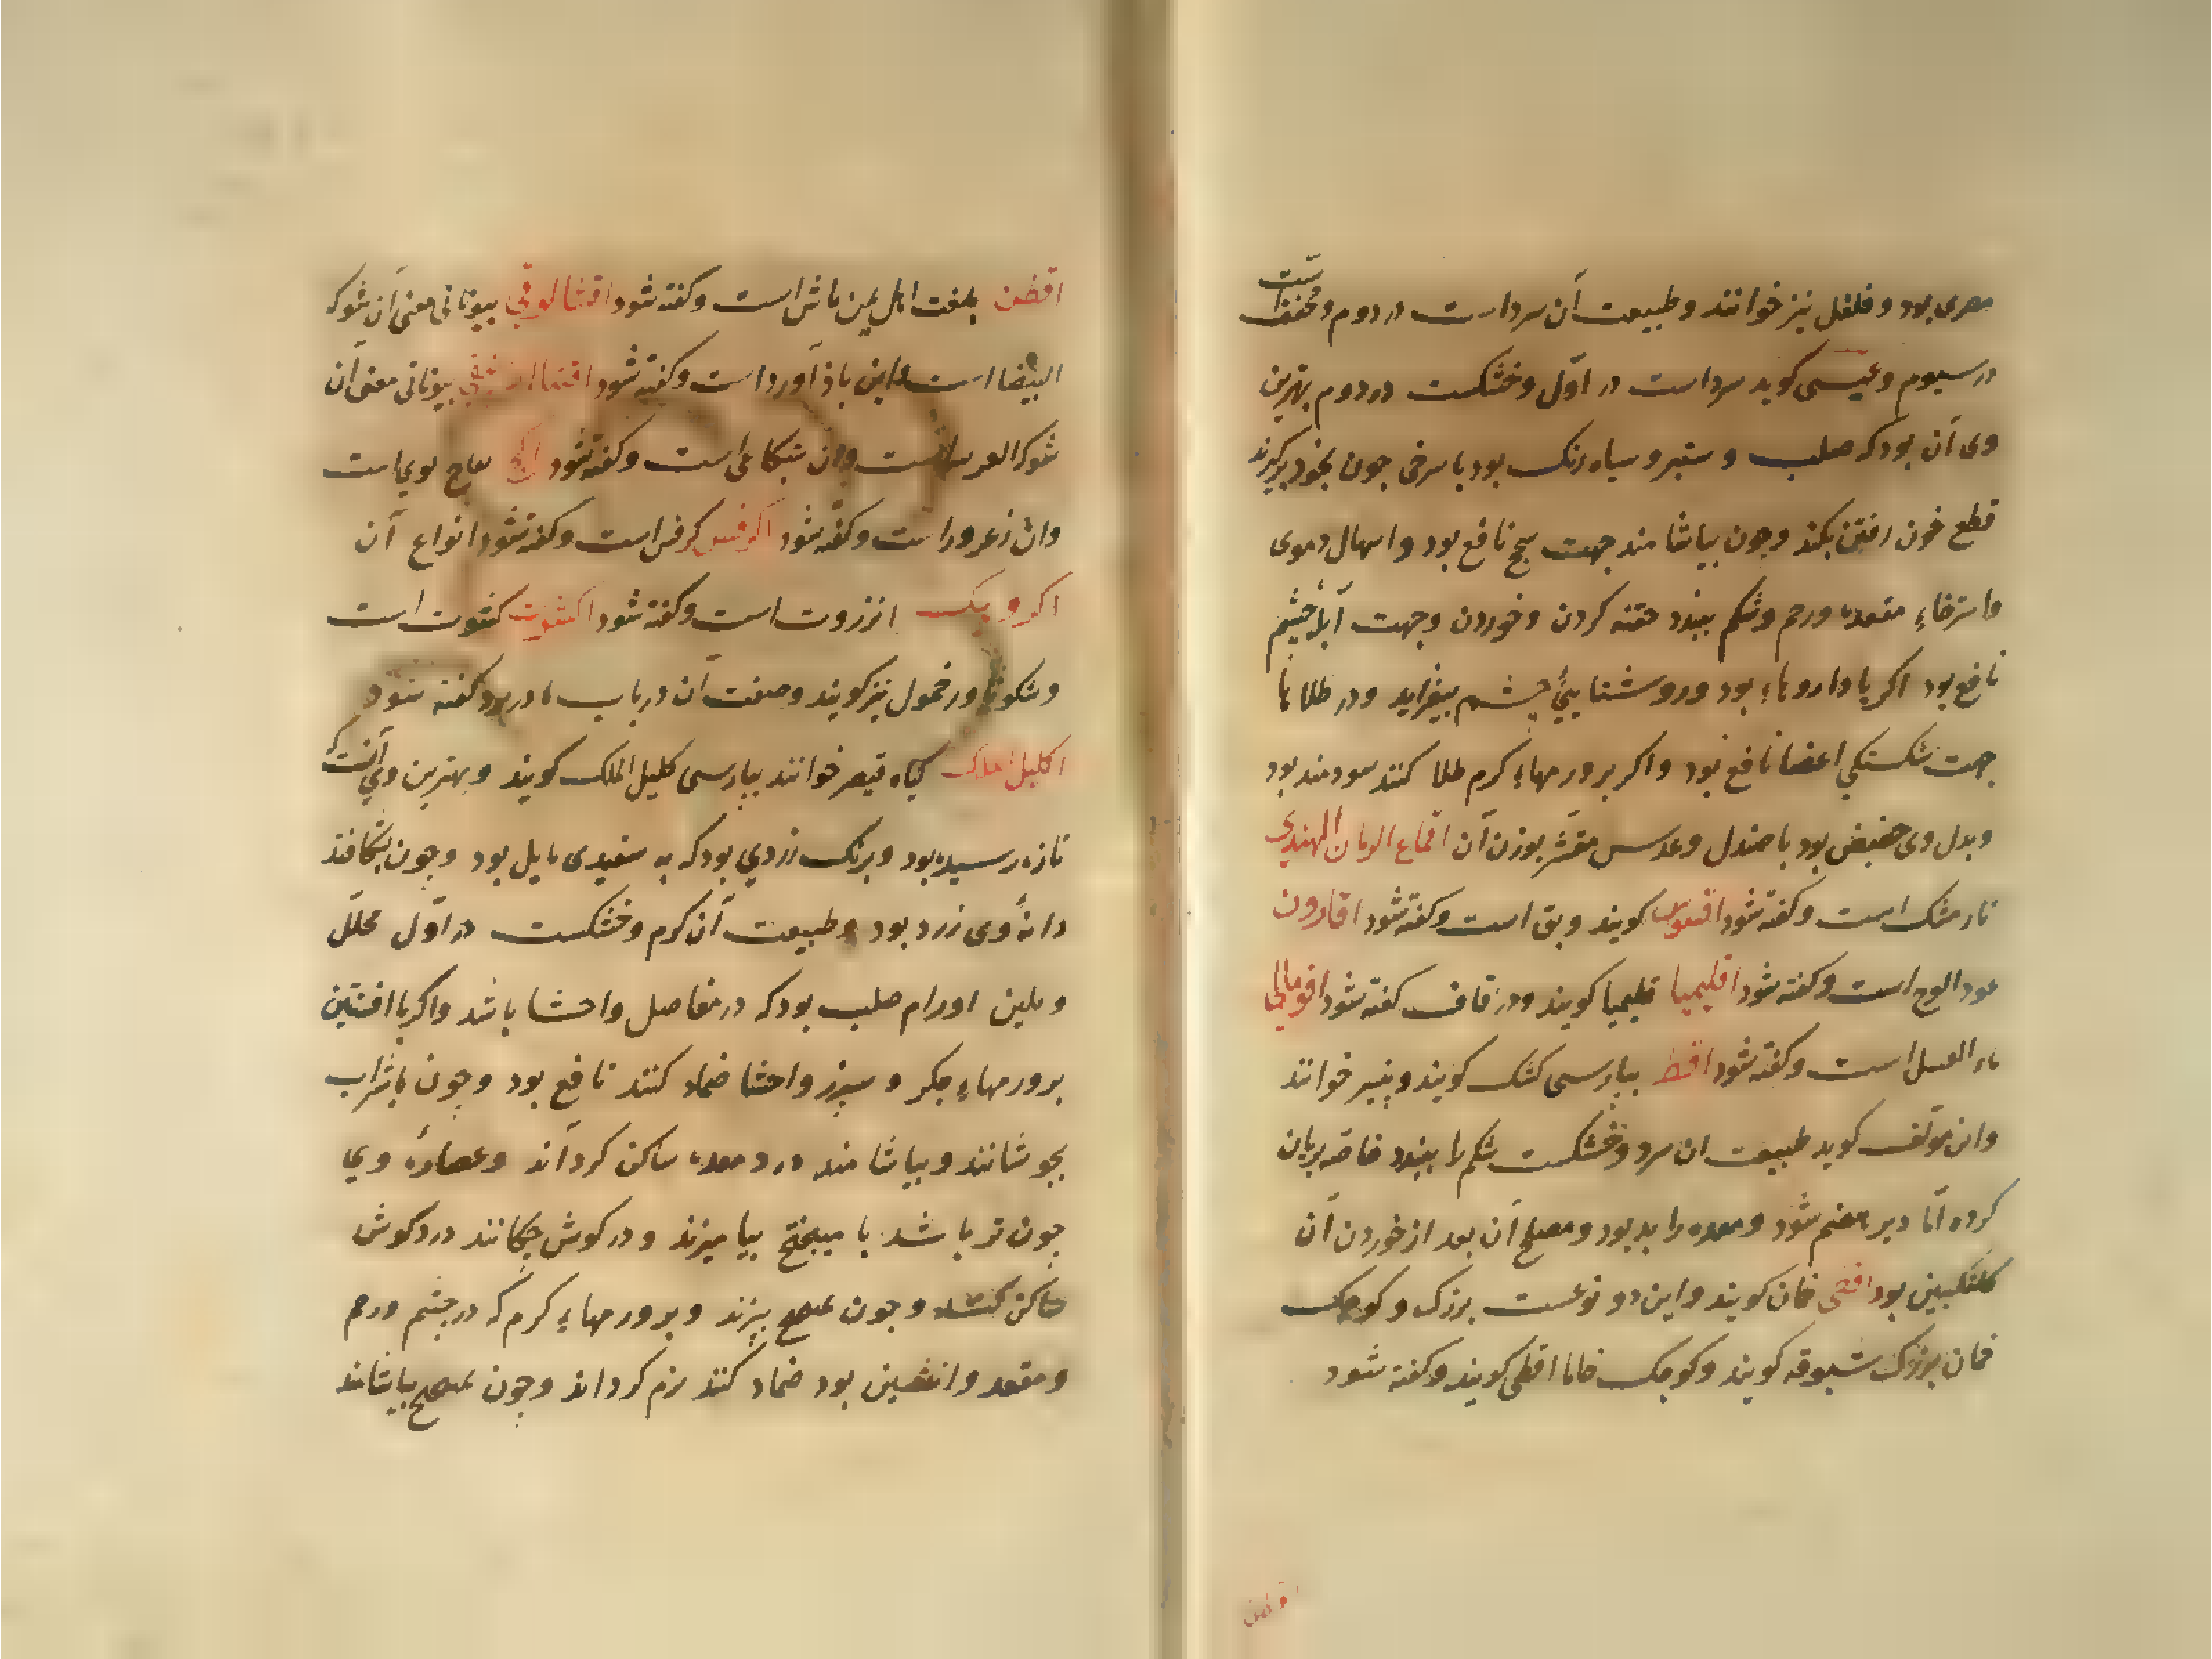 مصری بود و فلفل نیز خوانند و طبیعت آن سرد است در دوم و مجفف است
در سیوم و عیسی کوید سرد است در اول و خشکست در دوم بهترین
وی آن بود که صلب و ستبر و سیاه رنک بود با سرخی چون بخود برکیرند
قطع خون رفتن بکند و چون بیاشامند جهت سحج نافع بود و اسهال دموی
و استرخاء مقعده و رحم و شکم ببندد حقنه کردن و خوردن و جهت آبله چشم
نافع بود اکر با داروهاء بود و روشنایی چشم بیفزاید و در طلاها
جهت شکستکی اعضا نافع بود و اکر بر ورمهاء کرم طلا کنند سودمند بود
و بدل وی حضض بود با صندل و عدس مقشر بوزن آن اقماع الرمان الهندی
نارمشک است و کفته شود کویند و بق است و کفته شود اقارون
عود الوج است و کفته شود اقلیمیا قلیمیا کویند و در قاف کفته شود اقومالی
ماء العسل است و کفته شود اقط بپارسی کشک کویند و پنیر خوانند
و ابن مولف کوید طبیعت ان سرد و خشکست شکم را ببندد خاصه بریان
کرده اما دیر هضم شود و معده را بد بود و مصلح آن بعد از خوردن آن
کلنکبین بود اقطی خمان کویند و این دو نوعست بزرک و کوچک
خمان بزرک شبوقه کویند و کوچک خاما اقطی کویند و کفته شود
اقضن بلغت اهل یمن ماش است و کفته شود اقشا لوقی بیونانی معنی آن شوکة
البیضا است و این باذآورد است و کفته شود بیونانی معنی آن
شوکة العربیه است و ان شکاعی است و کفته شود است
وان زعرور است و کفته شود اکرفس کرفس است و کفته شود انواع آن
انزروت است و کفته شود اکشوت کشوت است
و شکوثا و رخمول نیز کویند و صفت آن در باب کفته شود
اکلیل الملک کیاه قیصر خوانند بپارسی کلیل الملک کویند و بهترین وی آنست که
تازه رسیده بود و برنک زردی بود که به سفیدی مایل بود و چون بشکافند
دانه وی زرد بود و طبیعت آن کرم و خشکست در اول محلل
و ملین اورام صلب بود که در مفاصل و احشا باشد و اکر با افسنتین
بر ورمهاء جکر و سپرز و احشا ضماد کنند نافع بود و چون با شراب
بجوشانند و بیاشامند درد معده ساکن کرداند و عصاره وی
چون تر باشد با میبختج بیامیزند و در کوش چکانند درد کوش
ساکن کند و چون بپزند و بر ورمهاء کرم که در چشم و رحم
و مقعد و انثیین بود ضماد کنند نرم کرداند و چون بیاشامند